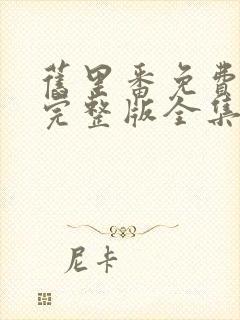 舊里番免費
完整版全集
尼卡